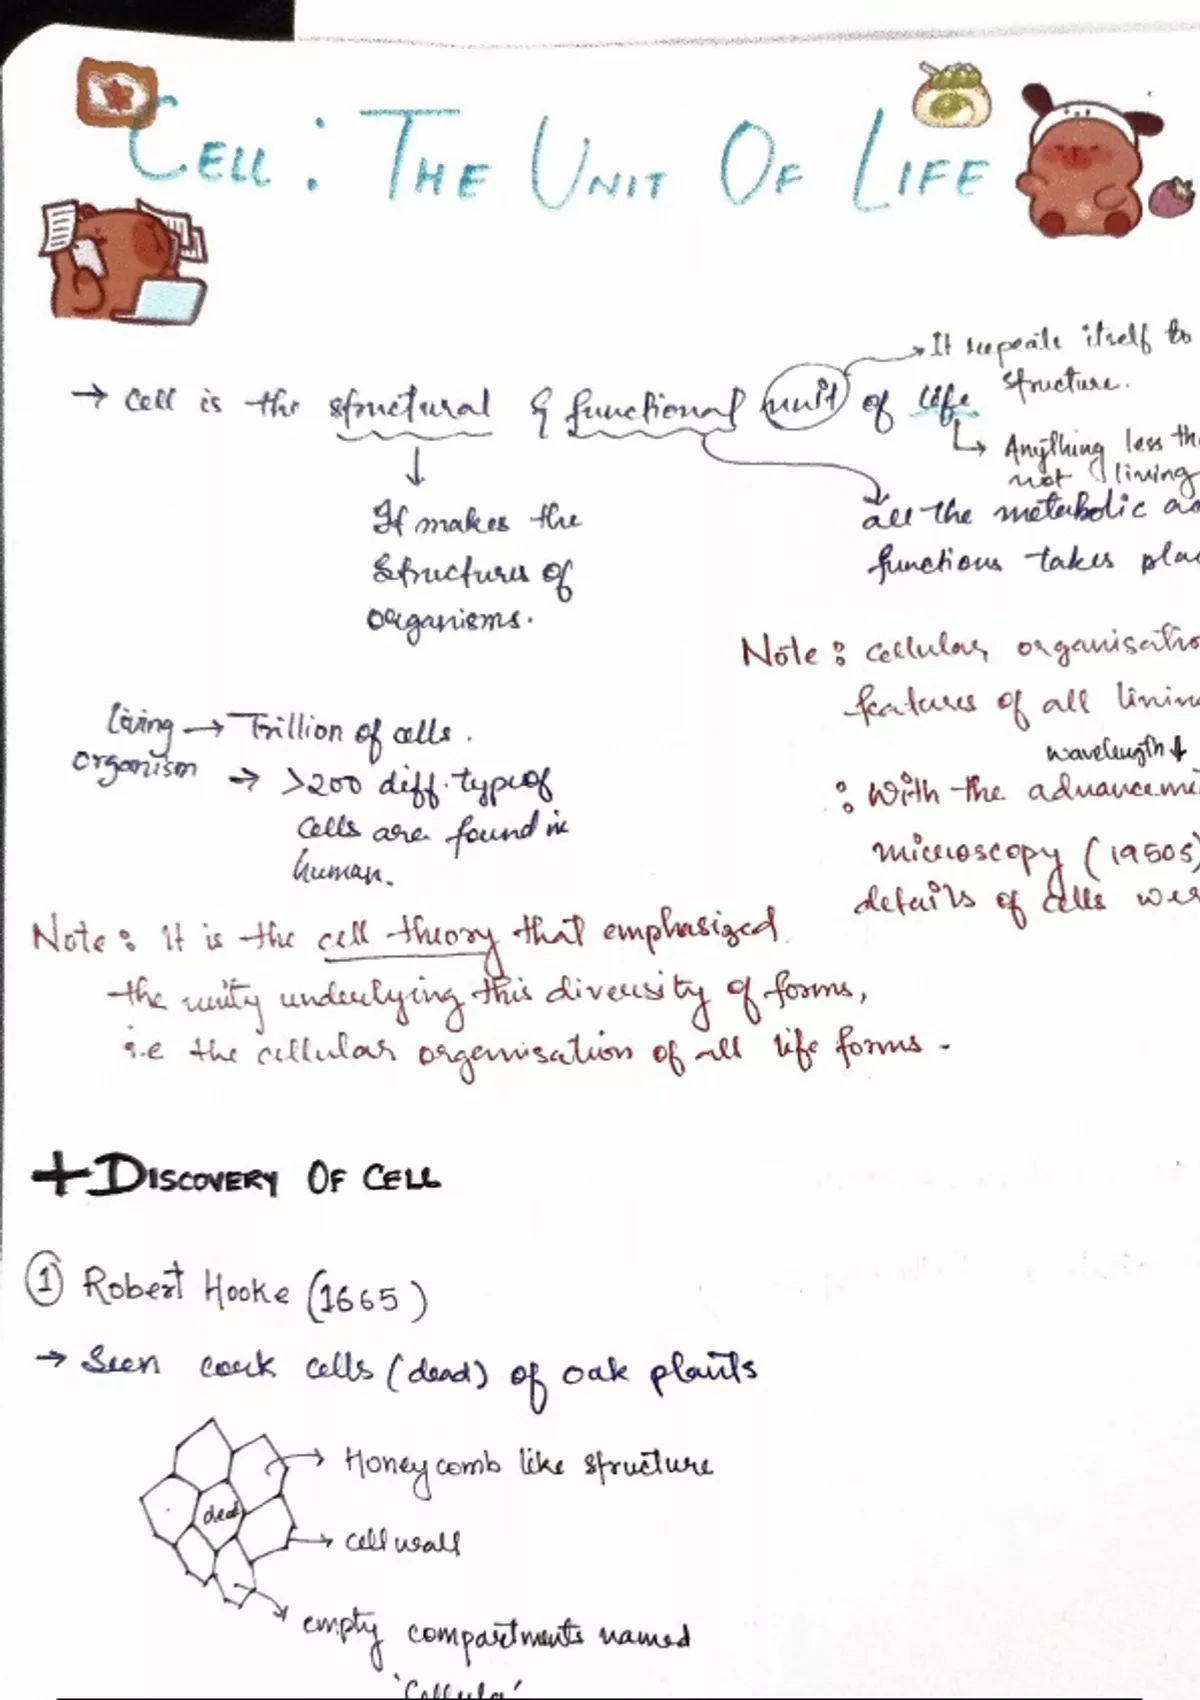 CELL : THE UNIT OF LIFE
It repeats itself to
structure.
→ Cell is the structural & functional unit of life
Anything less th
not living
↓
It makes the
structures of
organisms.
all the metabolic ac
functions takes plac
Note : cellular organisatio
features of all living
wavelength ↓
: With the advanceme
microscopy (1950s)
details of cells wer
living organism → Trillion of cells.
→ >200 diff. type of
cells are found in
human.
Note : It is the cell theory that emphasized
the unity underlying this diversity of forms,
i.e the cellular organisation of all life forms.
+ DISCOVERY OF CELL
① Robert Hooke (1665)
→ Seen cork cells (dead) of oak plants
→ Honeycomb like structure
dead
→ cell wall
→ empty compartments named
'Cellula'